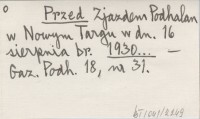 o
Przed Zjazdem Podhalan
w Nowym Targu w dn. 16
sierpnia br. 1930... —
Gaz. Podh. 18, nr 31.